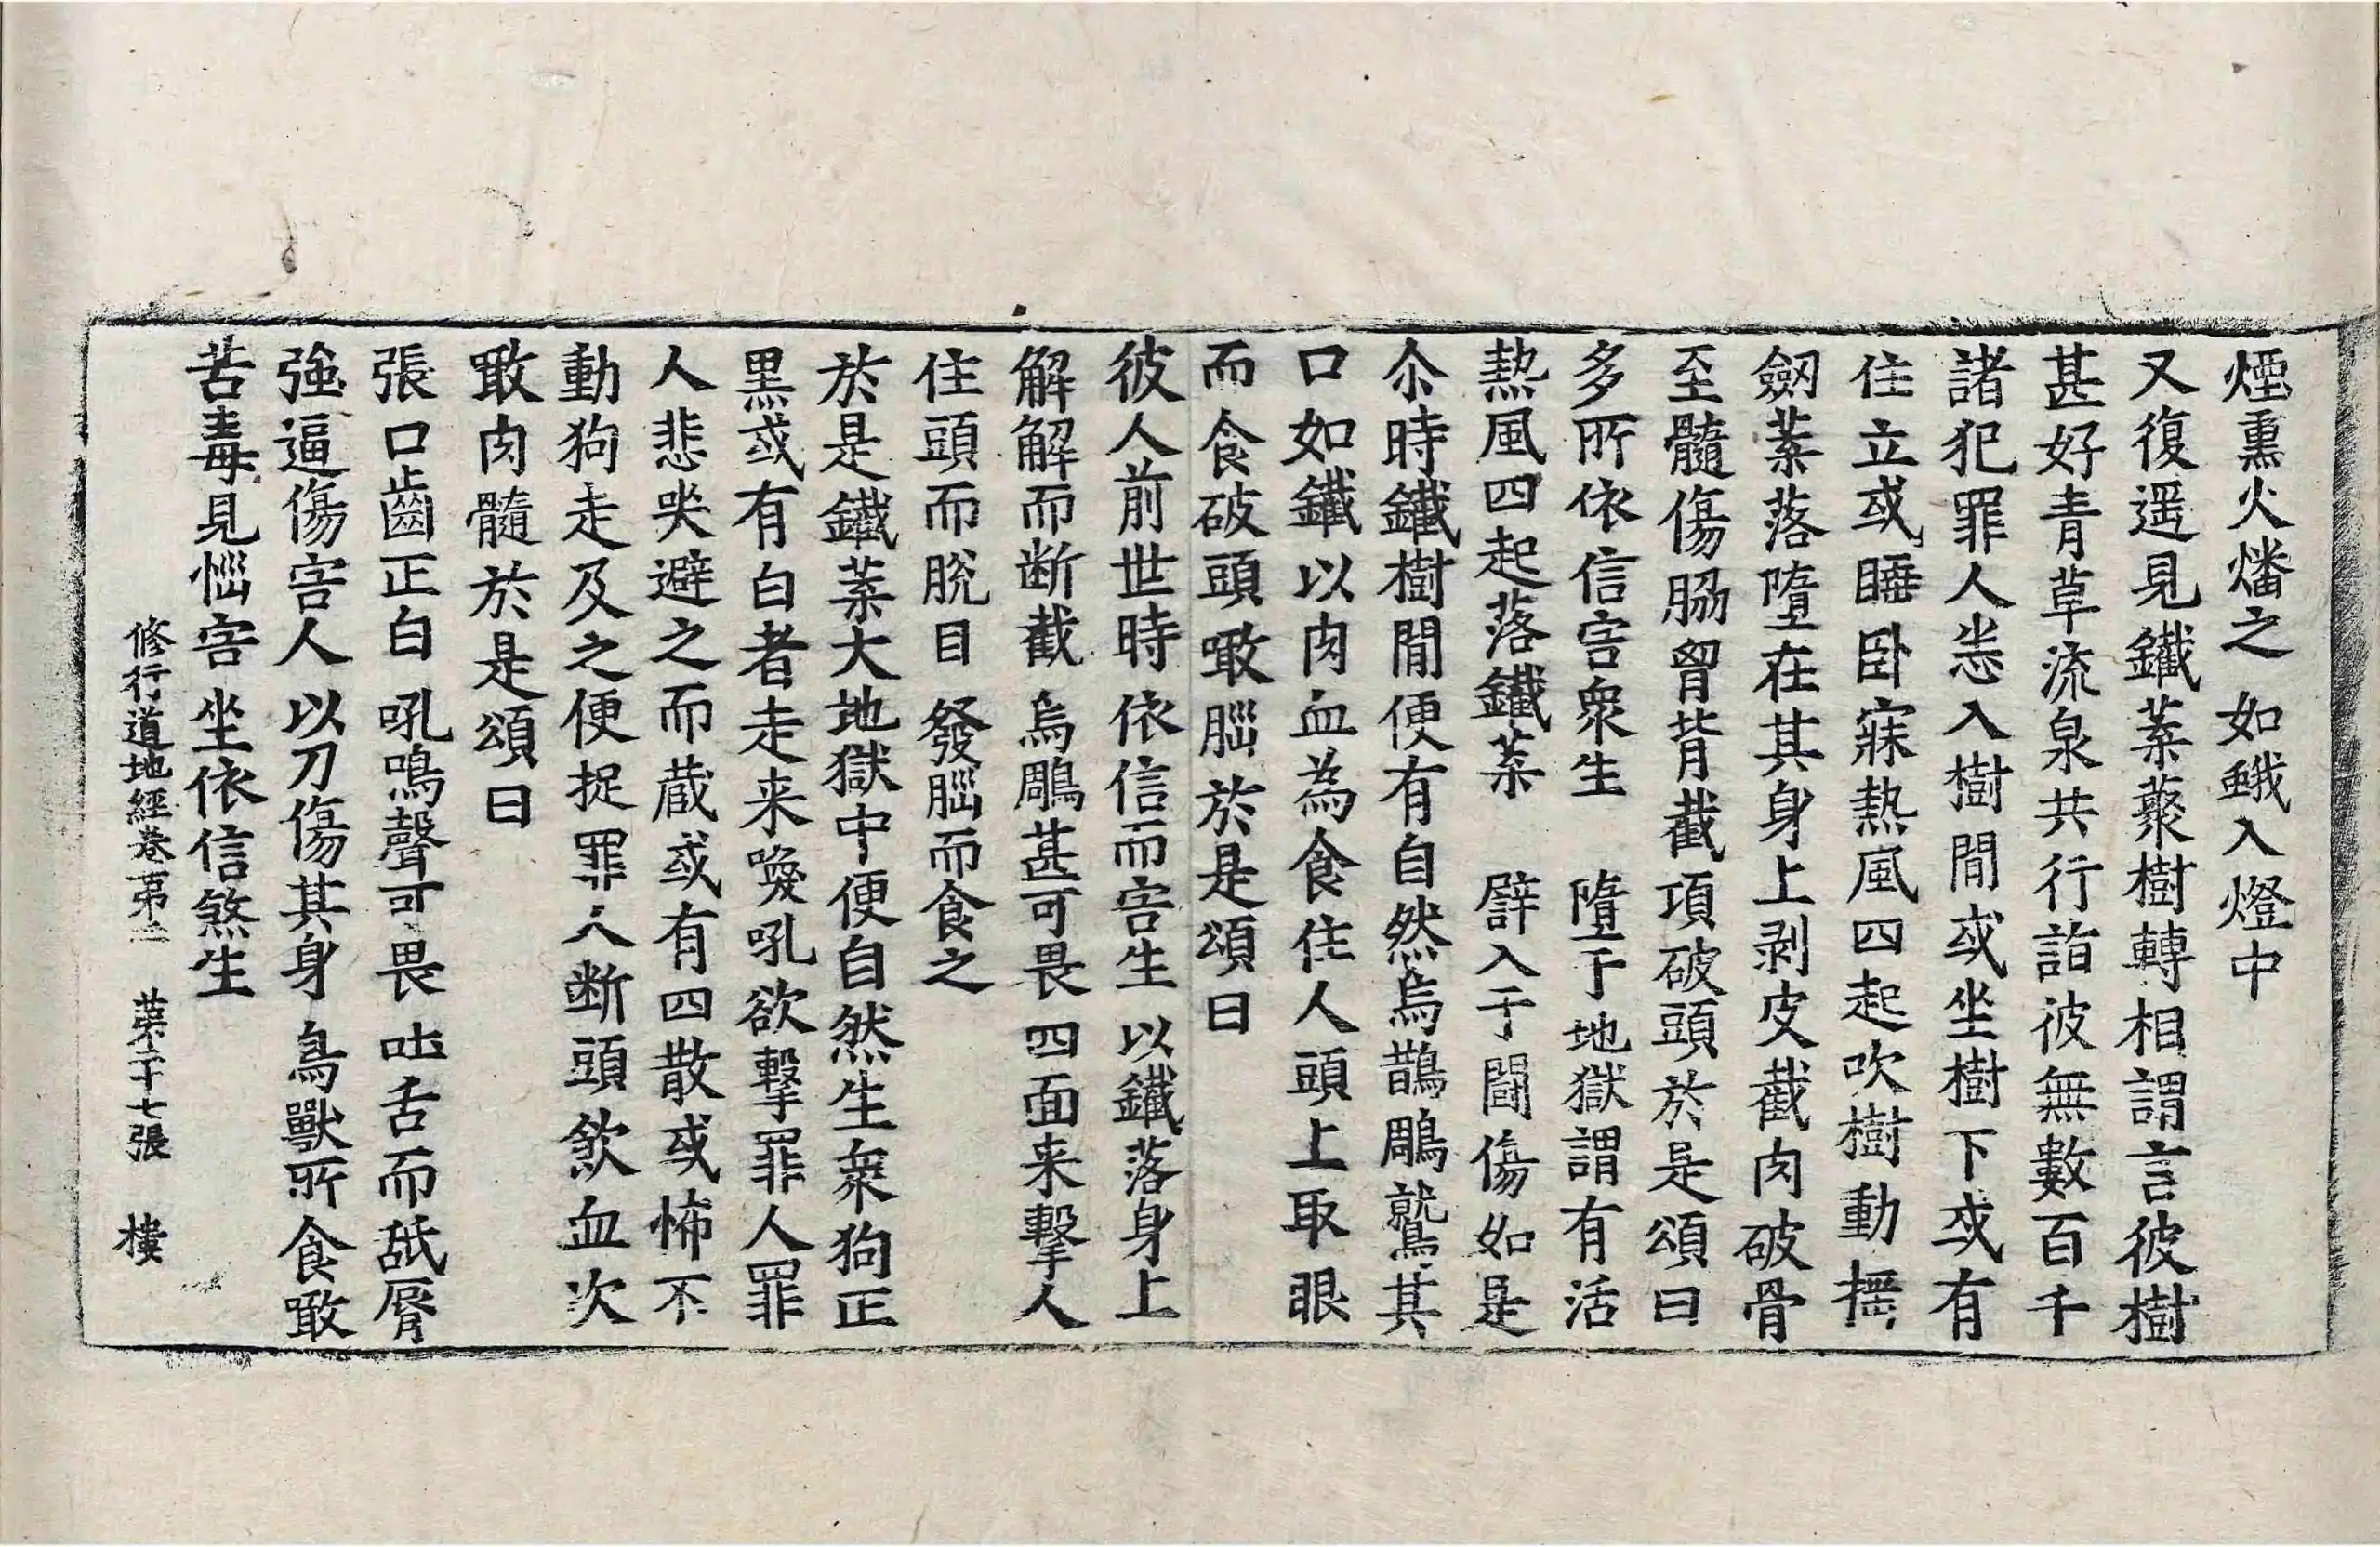 煙熏火燔之　如蛾入燈中
又復遥見鐵葉藂樹轉相謂言彼樹
甚好青草流泉共行詣彼無數百千
諸犯罪人悉入樹間或坐樹下或有
住立或睡卧寐熱風四起吹樹動搖
劒葉落墮在其身上剥皮截肉破骨
至髓傷脇胷背截項破頭於是頌曰
多所依信害衆生　墮于地獄謂有活
熱風四起落鐵葉　辟入于鬪傷如是
尒時鐵樹間便有自然烏鵲鵰鷲其
口如鐵以肉血為食住人頭上取眼
而食破頭噉腦於是頌曰
彼人前世時　依信而害生　以鐵落身上
解解而断截　烏鵰甚可畏　四面来擊人
住頭而脫目　發腦而食之
於是鐵葉大地獄中便自然生衆狗正
黒或有白者走来喚吼欲擊罪人罪
人悲哭避之而蔵或有四散或怖不
動狗走及之便捉罪人断頭飲血次
噉肉髓於是頌曰
張口齒正白　吼鳴聲可畏　吐舌而舐脣
強逼傷害人　以刀傷其身　鳥獸所食噉
苦毒見惱害　坐依信煞生
修行道地經卷第二　第二十七張　樓